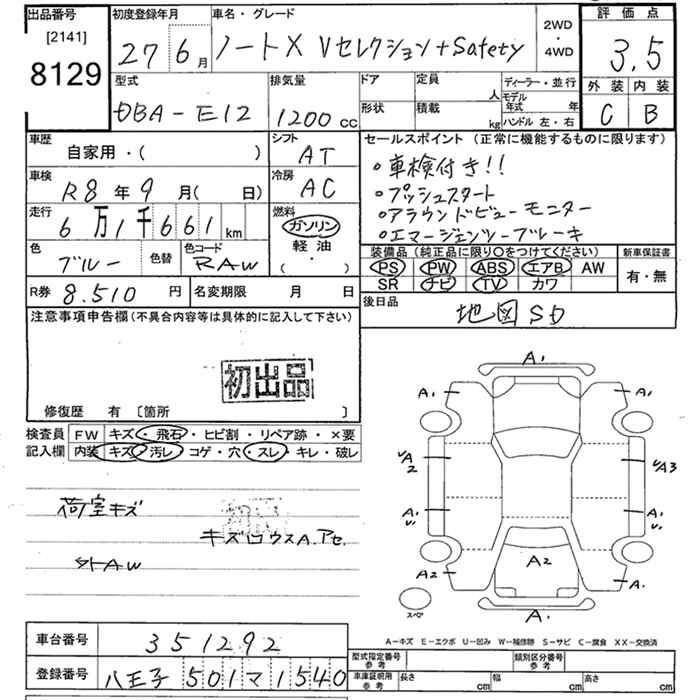 出品番号
[2141]
8129
初度登録年月
27 6月
車名・グレード
ノートX Vセレクション+Safety
2WD
・
4WD
評価点
3.5
外装 内装
C B
型式
DBA-E12
排気量
1200 CC
ドア
形状
定員 人
積載 kg
ディーラー・並行
モデル年式 年
ハンドル 左・右
車歴
自家用・( )
シフト
AT
車検
R8年9月( 日)
冷房
AC
走行
6万1千661km
燃料
ガソリン
軽油
( ・ )
色
ブルー
色替
色コード
RAW
セールスポイント (正常に機能するものに限ります)
・車検付き!!
・プッシュスタート
・アラウンドビューモニター
・エマージェンシーブレーキ
装備品(純正品に限り○をつけてください)
PS PW ABS エアB AW
SR ナビ TV カワ
新車保証書
有・無
R券 8.510 円
名変期限 月 日
後日品
地図SD
注意事項申告欄(不具合内容等は具体的に記入して下さい)
初出品
修復歴 有 [箇所 ]
検査員
記入欄
FW キズ・飛石・ヒビ割・リペア跡・×要
内装 キズ・汚レ・コゲ・穴・スレ・キレ・破レ
荷室キズ
外AW
A1
A1 A1
A2 A3
A1 A1
A2 A2 A1
A1
スペア
A-キズ E-エクボ U-凹み W-補修跡 S-サビ C-腐食 XX-交換済
車台番号 351292
登録番号 八王子 501マ1540
型式指定番号
参考
類別区分番号
参考
車庫証明用
参考
長さ cm 幅 cm 高さ cm